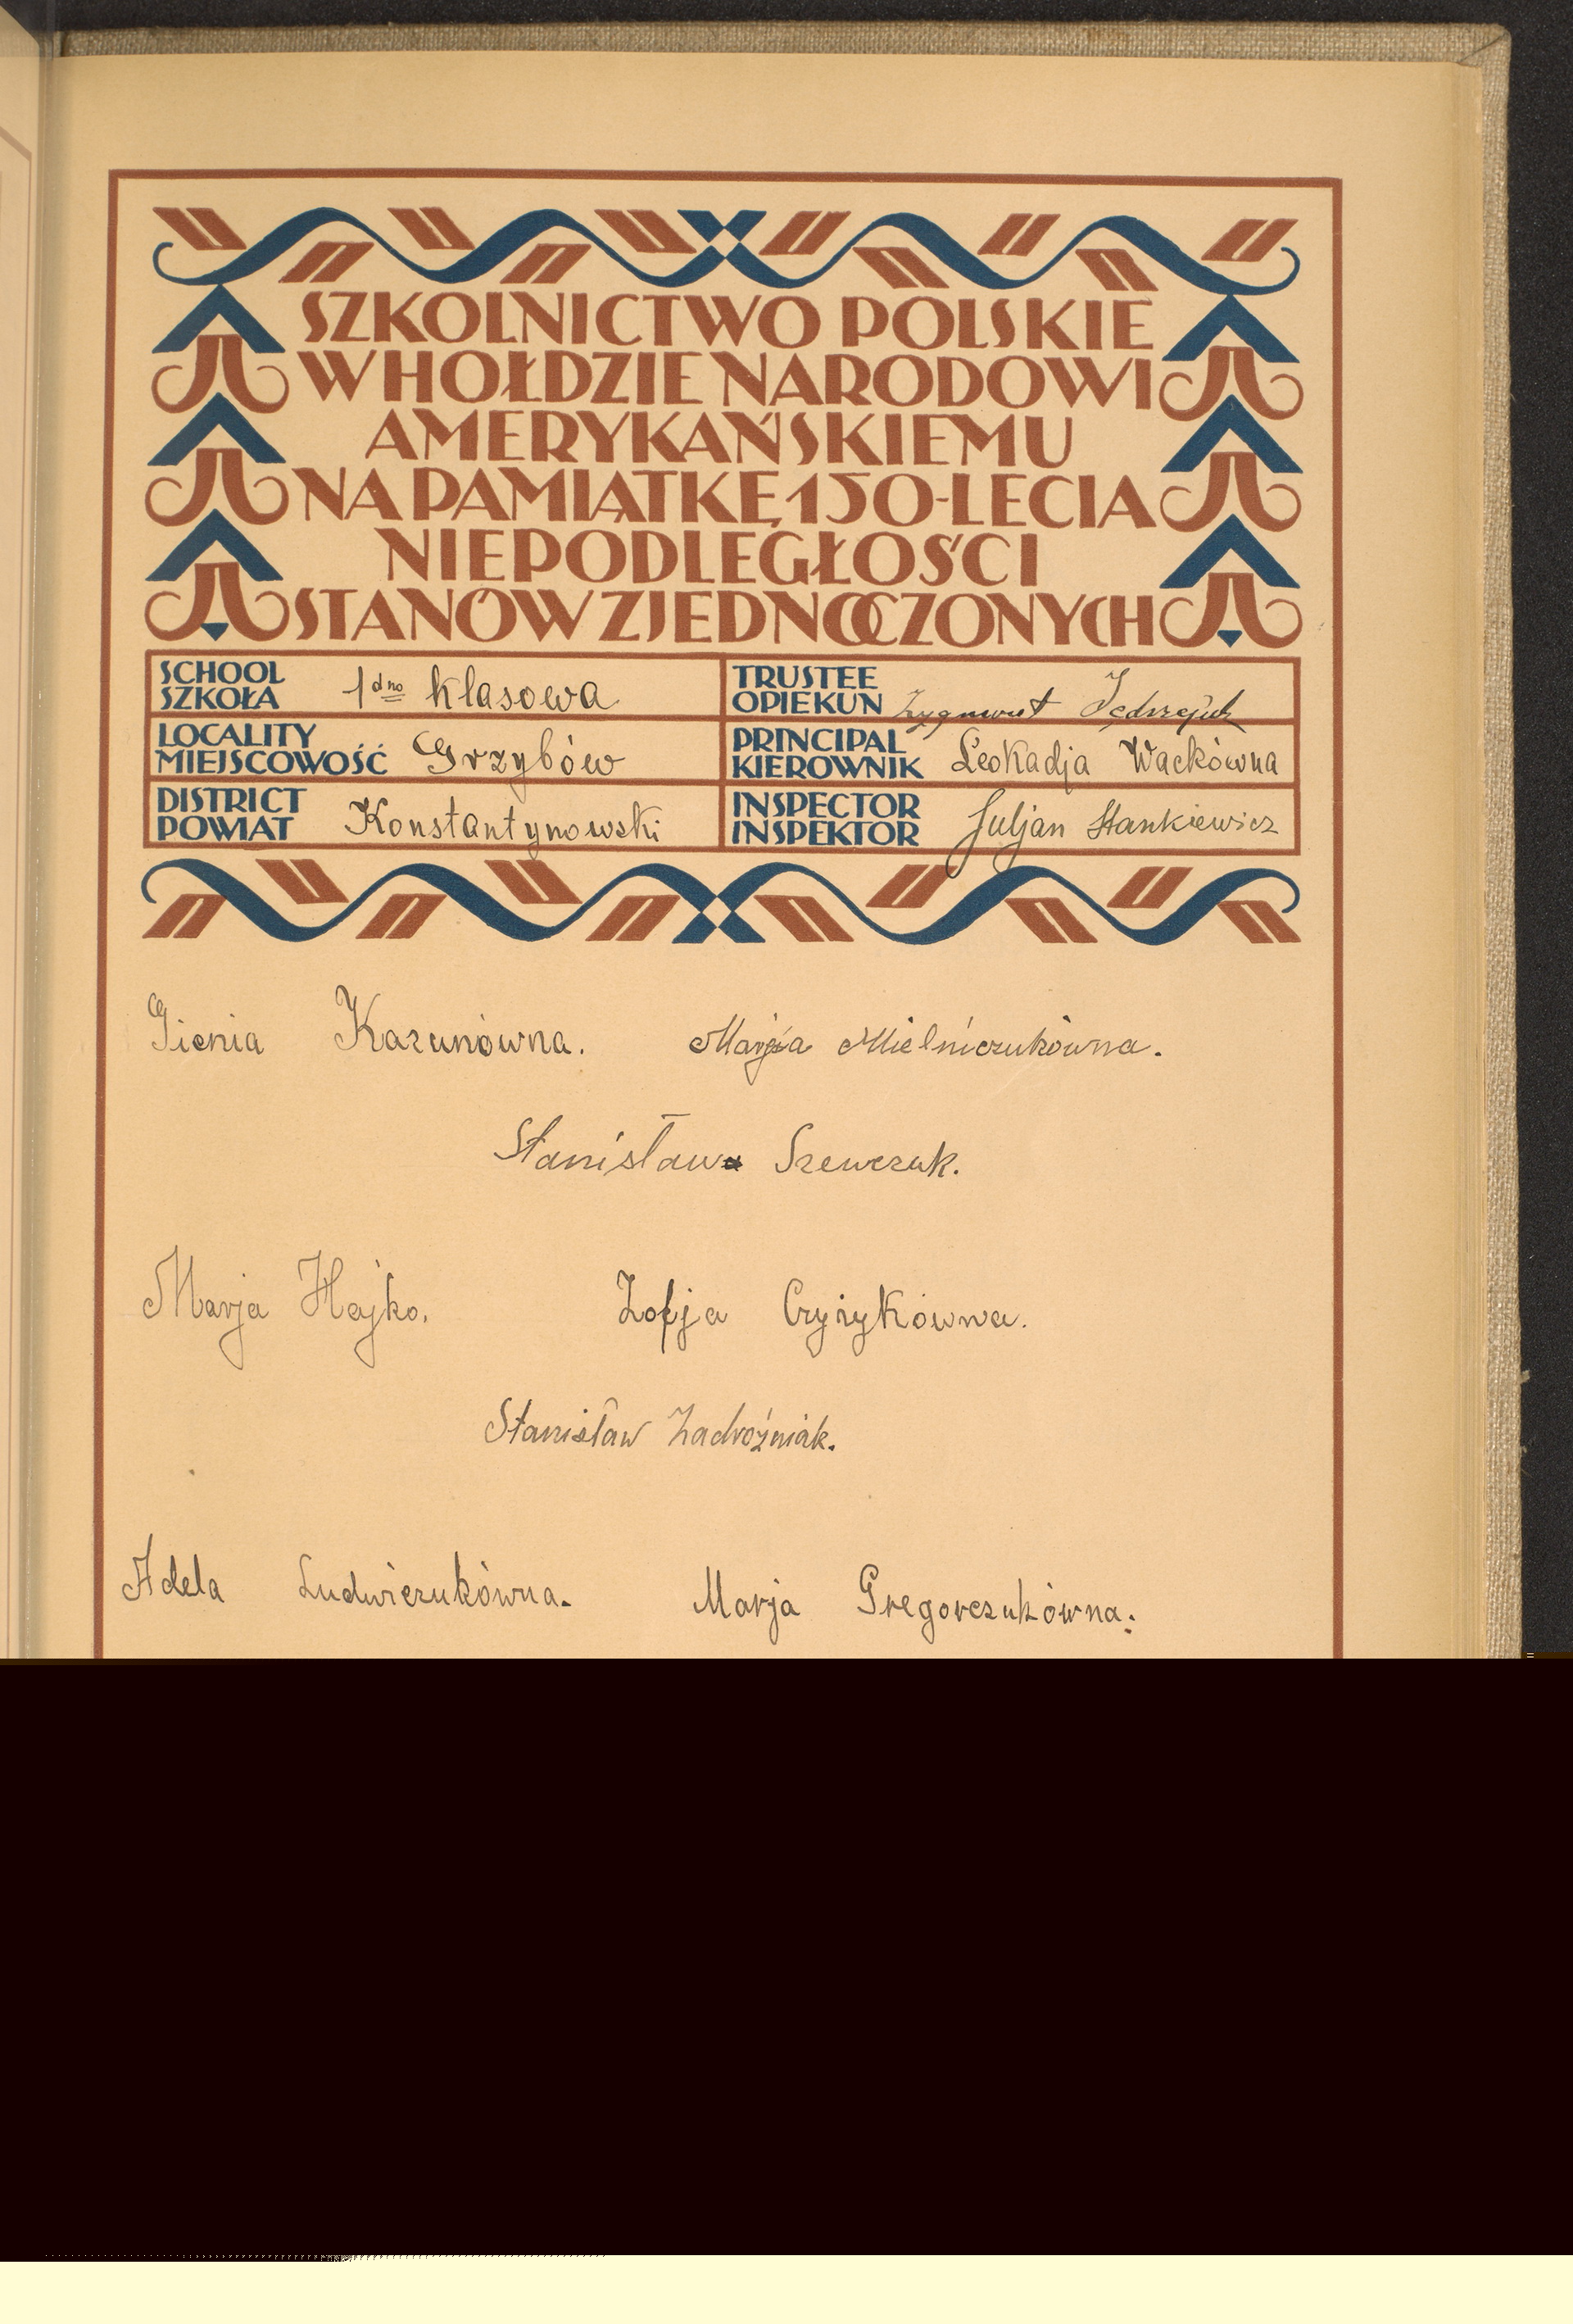 SZKOLNICTWO POLSKIE
W HOŁDZIE NARODOWI
AMERYKAŃSKIEMU
NA PAMIĄTKĘ 150-LECIA
NIEPODLEGŁOŚCI
STANÓW ZJEDNOCZONYCH
SCHOOL
SZKOŁA 1dno klasowa
TRUSTEE
OPIEKUN Zygmunt Jędrzejuk
LOCALITY
MIEJSCOWOŚĆ Grzybów
PRINCIPAL
KIEROWNIK Leokadja Wackówna
DISTRICT
POWIAT Konstantynowski
INSPECTOR
INSPEKTOR Juljan Stankiewicz
Gienia Kazunówna. Marja Mielniczukówna.
Stanisława Szewczuk.
Marja Hajko. Zofja Czyżykówna.
Stanisław Zadrożniak.
Adela Ludwiczukówna. Marja Gregorczukówna.